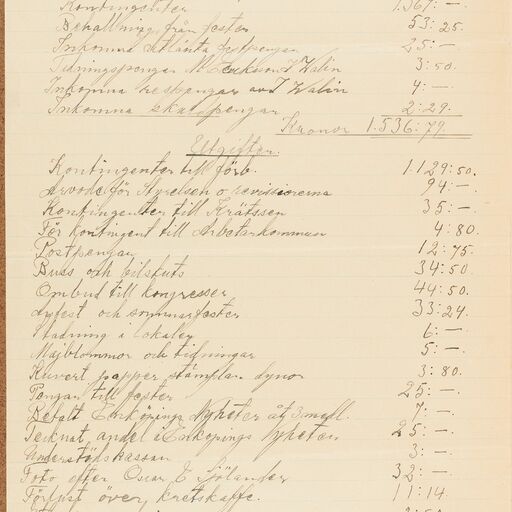 Kontingenter 1.367:—.
Behållning från fester 53:25.
Inkomna festpengar 25:—
Tidningspengar M. Eriksson I. Walin 3:50.
Inkomna respengar av I. Walin 4:—.
Inkomna skattpengar 2:29.
Kronor 1.536:79.
Utgifter.
Kontingenter till förb. 1.129:50.
Arvode för Styrelsen o. revissorerna 94:—.
Kontingenter till Krätssen 35:—
För kontingent till Arbetarkommun 4:80.
Postpengar 12:75.
Buss och bilskuts 34:50.
Ombud till kongresser 44:50.
fest och sommarfester 33:24.
Städning i lokaler 6:—.
Majblommor och tidningar 5:—.
Kuvert papper stämplar dynor 3:80.
Pengar till fester 25:—.
Betalt Enköpings Nyheter åt 3 medl. 7:—.
Tecknat andel i Enköpings Nyheter 25:—.
Understödskassan 3:—.
Foto efter Oscar E. Sjölander 32:—
Förlust över kretskaffe. 11:14.